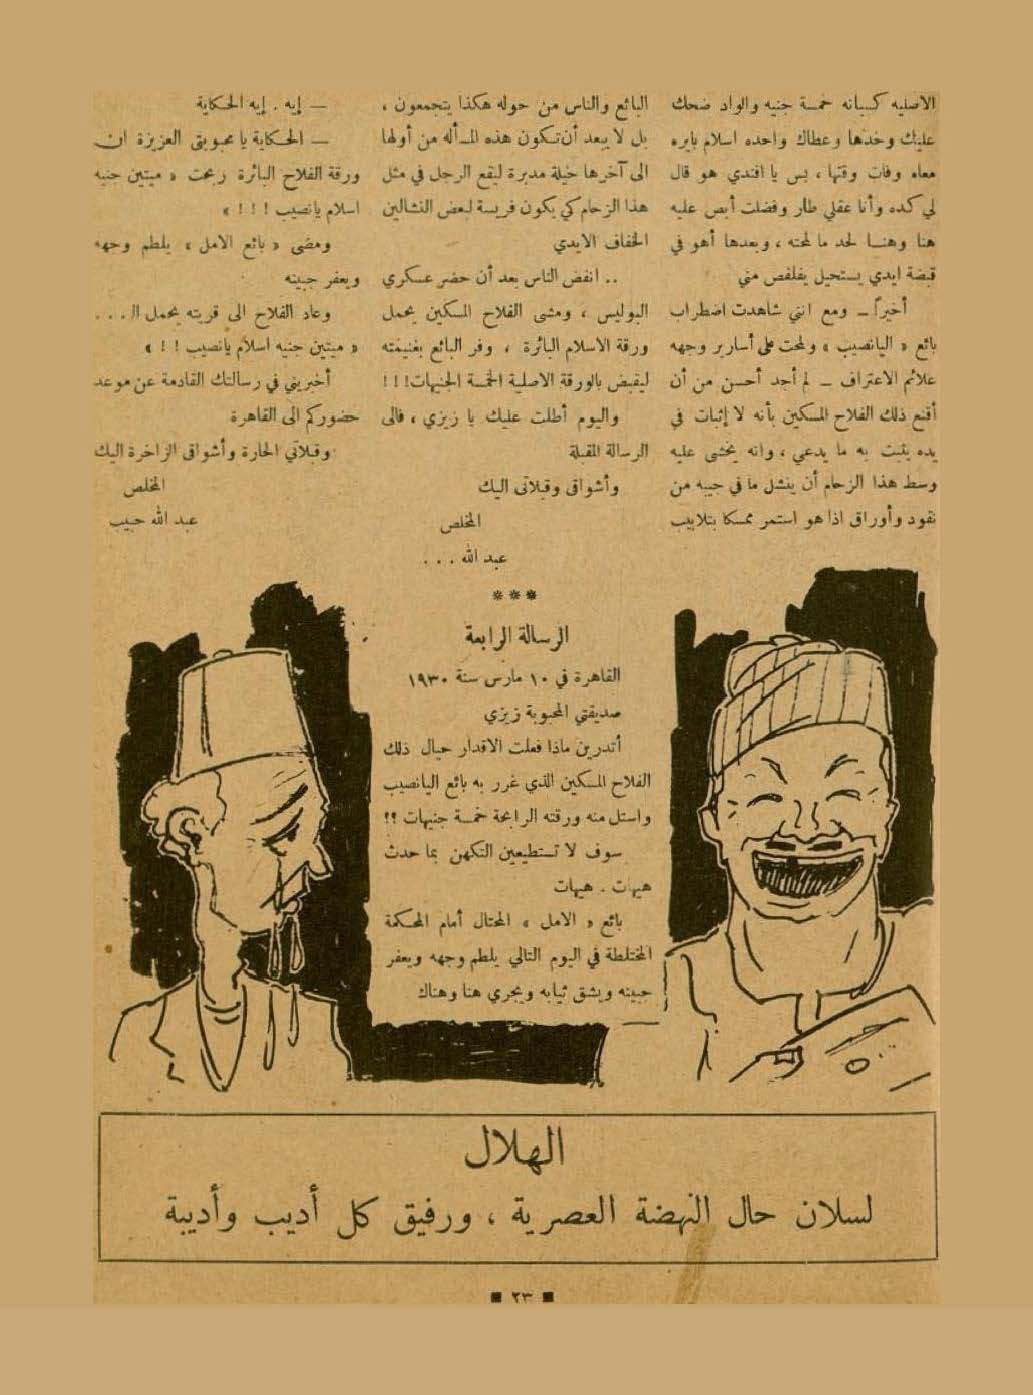 الاصليه كسبانه خمسة جنيه والواد ضحك
عليك وخدها وعطاك واحده اسلام بايره
معاه وفات وقتها ، بس يا افندي هو قال
لي كده وأنا عقلي طار وفضلت أبص عليه
هنا وهنا لحد ما لمحته ، وبعدها أهو في
قبضة ايدي يستحيل يفلفص مني
أخيراً – ومع انني شاهدت اضطراب
بائع « اليانصيب » ولمحت على أسارير وجهه
علائم الاعتراف – لم أجد أحسن من أن
أقنع ذلك الفلاح المسكين بأنه لا إثبات في
يده يثبت به ما يدعي ، وانه يخشى عليه
وسط هذا الزحام أن ينشل ما في جيبه من
نقود وأوراق اذا هو استمر ممسكا بتلابيب
البائع والناس من حوله هكذا يتجمعون ،
بل لا يبعد أن تكون هذه المسألة من أولها
الى آخرها حيلة مدبرة ليقع الرجل في مثل
هذا الزحام كي يكون فريسة لبعض النشالين
الخفاف الايدي
.. انفض الناس بعد أن حضر عسكري
البوليس ، ومشى الفلاح المسكين يحمل
ورقة الاسلام البائرة ، وفر البائع بغنيمته
ليقبض بالورقة الاصلية الخمسة الجنيهات!!!
واليوم أطلت عليك يا زيزي ، فالى
الرسالة المقبلة
وأشواقى وقبلاتى اليك
المخلص
عبد الله . . .
***
الرسالة الرابعة
القاهرة في ١٠ مارس سنة ١٩٣٠
صديقتي المحبوبة زيزي
أتدرين ماذا فعلت الاقدار حيال ذلك
الفلاح المسكين الذي غرر به بائع اليانصيب
واستل منه ورقته الرابحة خمسة جنيهات ؟؟
سوف لا تستطيعين التكهن بما حدث
هيهات . هيهات
بائع « الامل » المحتال أمام المحكمة
المختلطة في اليوم التالي يلطم وجهه ويعفر
جبينه ويشق ثيابه ويجري هنا وهناك
– إيه . إيه الحكاية
– الحكاية يا محبوبتى العزيزة ان
ورقة الفلاح البائرة ربحت « ميتين جنيه
اسلام يانصيب ! ! ! »
ومضى « بائع الامل » يلطم وجهه
ويعفر جبينه
وعاد الفلاح الى قريته يحمل الـ . . .
« ميتين جنيه اسلام يانصيب ! ! »
أخبريني في رسالتك القادمة عن موعد
حضوركم الى القاهرة
وقبلاتي الحارة وأشواقى الزاخرة اليك
المخلص
عبد الله حبيب
الهلال
لسلان حال النهضة العصرية ، ورفيق كل أديب وأديبة
■ ٢٣ ■